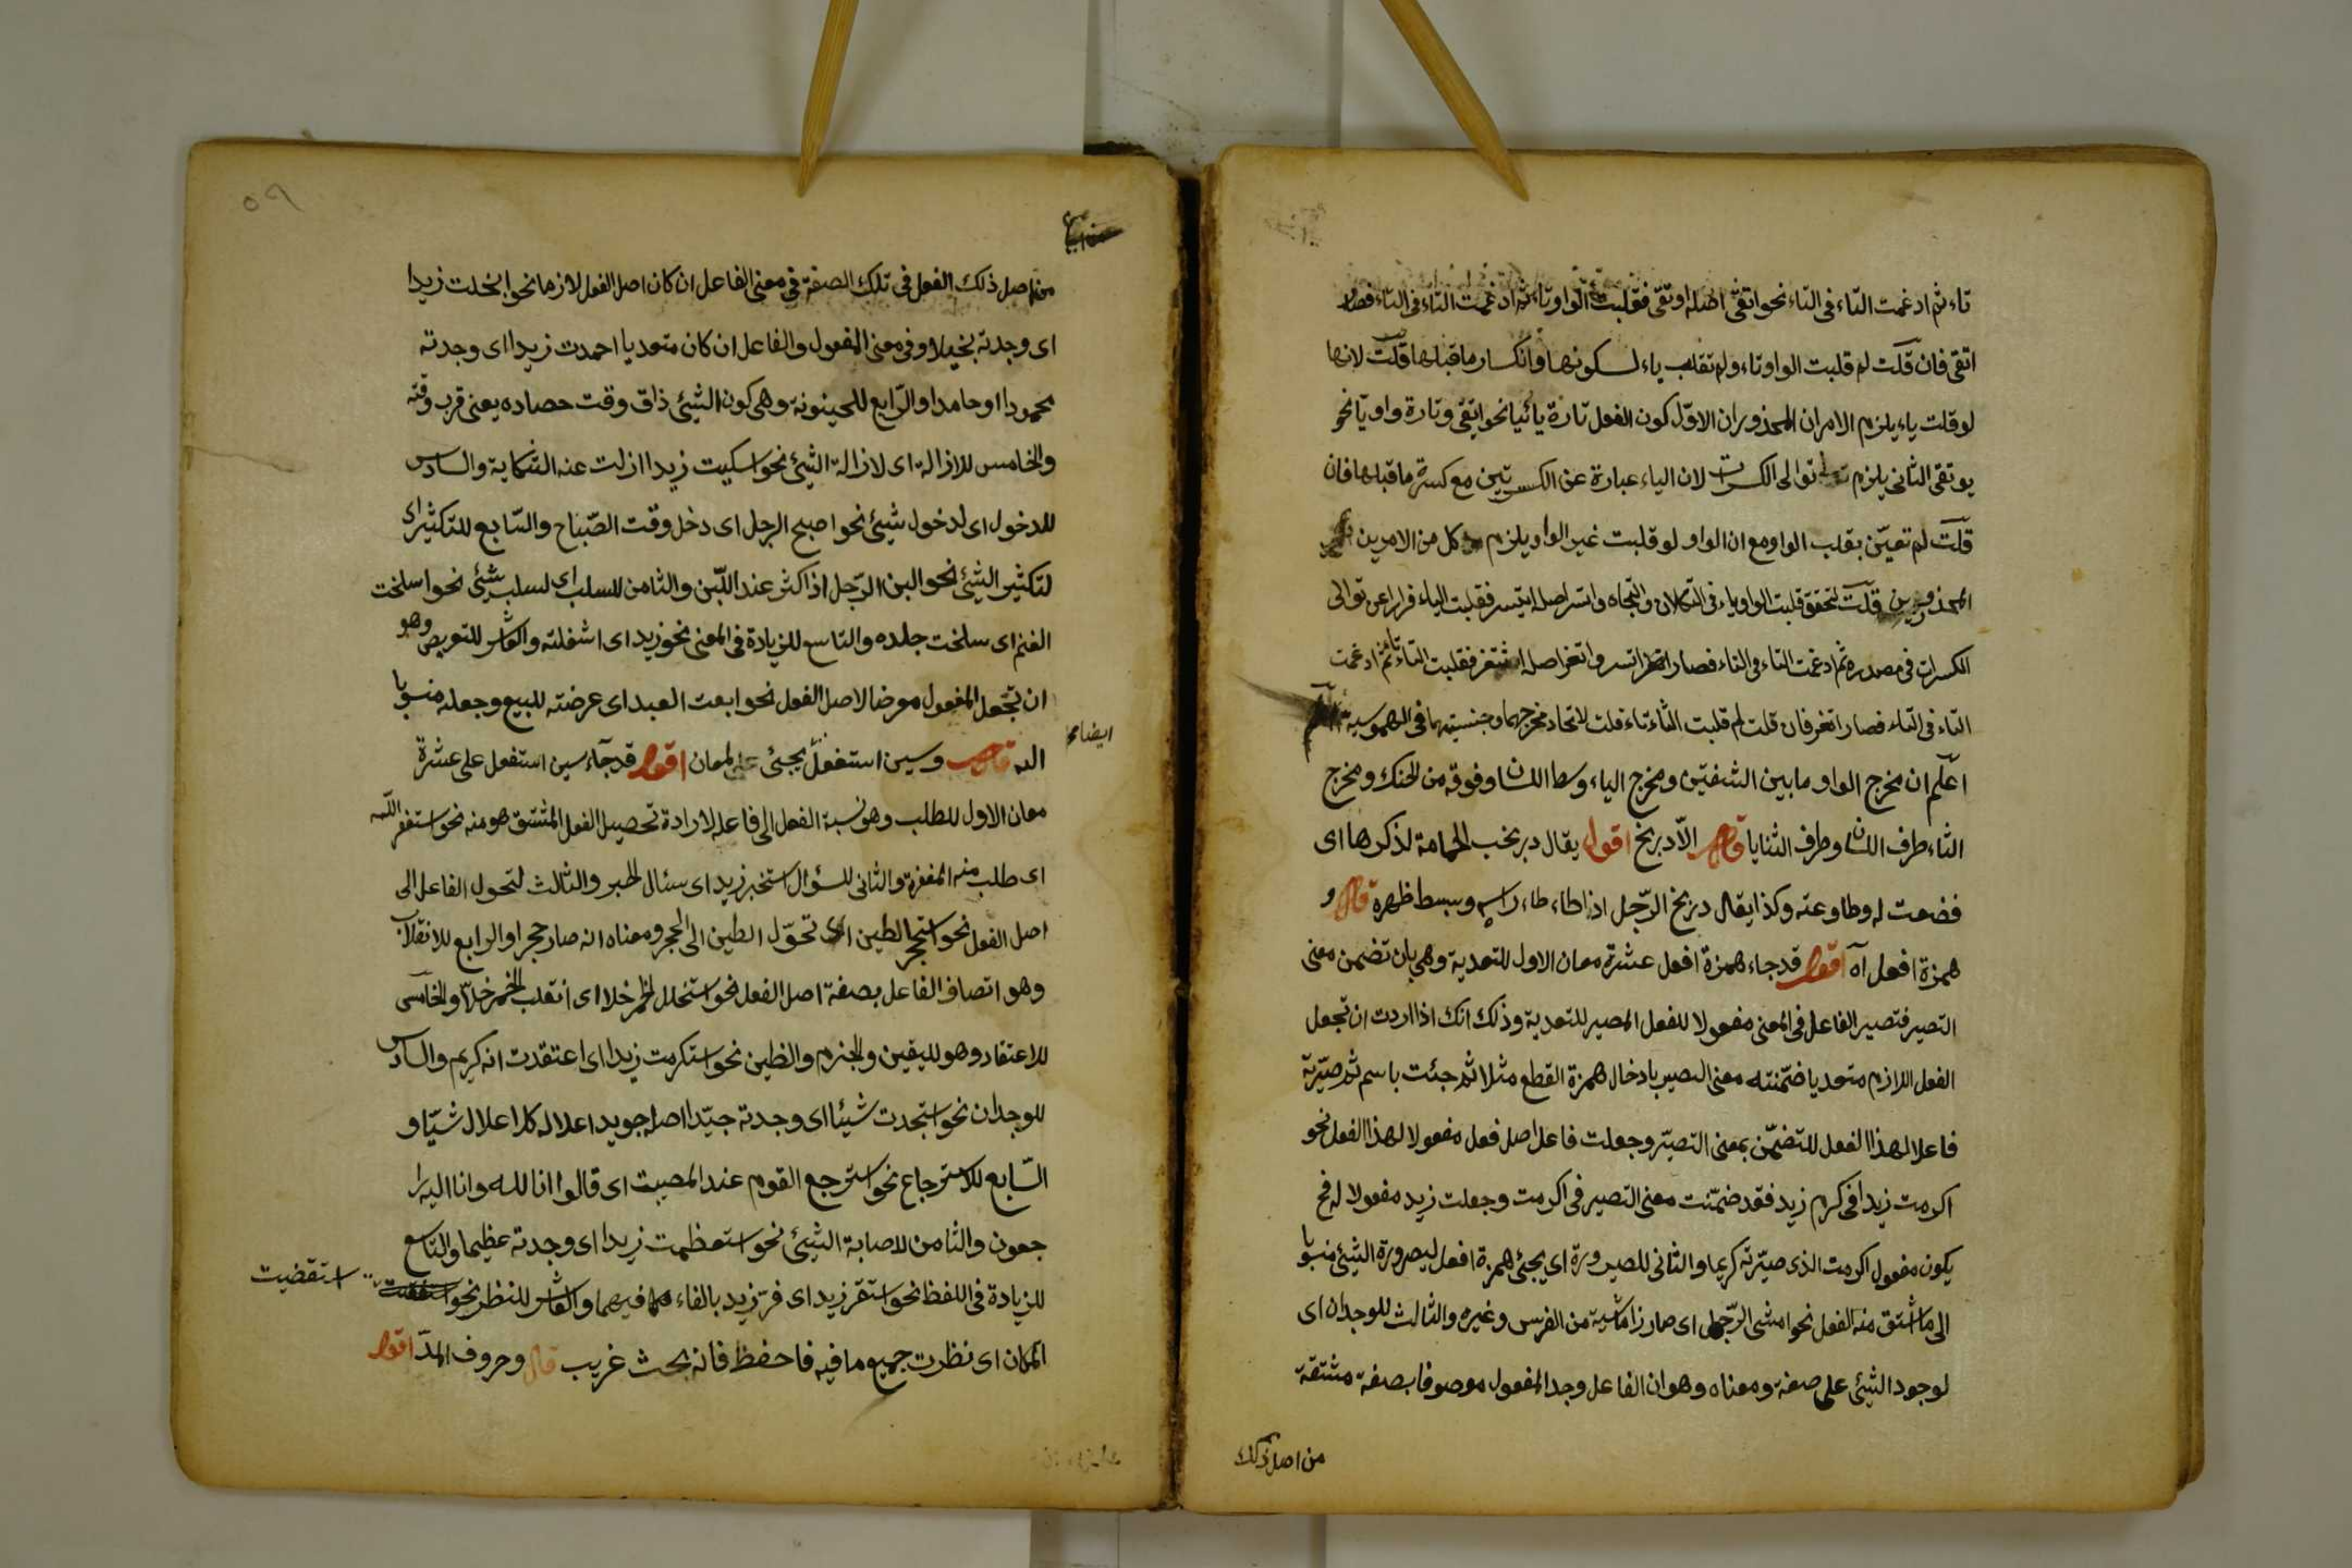 تاء ثم ادغمت التاء فى التاء نحو اتقى اصله اوتقى فقلبت الواو تاء ثم ادغمت التاء فى التاء فصار
اتقى فان قلت لم قلبت الواو تاء ولم تقلب ياء لسكونها وانكسار ما قبلها قلت لانها
لو قلبت ياء يلزم الامران المحذوران الاول كون الفعل تارة يائيا نحو ايتقى وتارة واويا نحو
يوتقى الثانى يلزم توالى الكسرات لان الياء عبارة عن الكسرتين مع كسرة ما قبلها فان
قلت لم تعين بقلب الواو مع ان الواو لو قلبت غير الواو يلزم كل من الامرين
المحذورين قلت لتحقق قلبت الواو ياء فى التكلان والتجاه واتسر اصله ايتسر فقلبت الياء فرارا عن توالى
الكسرات فى مصدره ثم ادغمت التاء فى التاء فصار اتسر واتغر اصله اثتغر فقلبت الثاء تاء ثم ادغمت
التاء فى التاء فصار اتغر فان قلت لم قلبت الثاء تاء قلت لاتحاد مخرجهما وجنسيتهما فى المهموسية
اعلم ان مخرج الواو ما بين الشفتين ومخرج الياء وسط اللسان وفوقه من الحنك ومخرج
الثاء طرف اللسان وطرف الثنايا قال الا دربخ اقول يقال دربخت الحمامة لذكرها اى
خضعت له وطاوعته وكذا يقال دربخ الرجل اذا طاء طاء راسه وبسط ظهره قال و
همزة افعل آه اقول قد جاء همزة افعل عشرة معان الاول للتعدية وهى بان تضمن معنى
التصير فتصير الفاعل فى المعنى مفعولا للفعل المصير للتعدية وذلك انك اذا اردت ان تجعل
الفعل اللازم متعديا ضمنته معنى التصير بادخال همزة القطع مثلا ثم جئت باسم ثم صيرته
فاعلا لهذا الفعل المتضمن بمعنى التصير وجعلت فاعل اصل فعل مفعولا لهذا الفعل نحو
اكرمت زيدا فى كرم زيد فقد ضمنت معنى التصير فى اكرمت وجعلت زيد مفعولا له فح
يكون مفعول اكرمت الذى صيرته كريما والثانى للصيرورة اى يجئ همزة افعل ليصرورة الشئ منسوبا
الى ما اشتق منه الفعل نحو امشى الرجل اى صار ذا ماشية من الفرس وغيره والثالث للوجدان اى
لوجود الشئ على صفة ومعناه وهو ان الفاعل وجد المفعول موصوفا بصفة مشتقة
من اصل ذلك
٥٩
من اصل ذلك الفعل فى تلك الصفة فى معنى الفاعل ان كان اصل الفعل لازما نحو ابخلت زيدا
اى وجدته بخيلا وفى معنى المفعول والفاعل ان كان متعديا احمدت زيدا اى وجدته
محمودا او حامدا والرابع للحينونة وهى كون الشيئ ذاق وقت حصاده يعنى قرب وقته
والخامس للازالة اى لازالة الشيئ نحو اشكيت زيدا ازلت عنه الشكاية والسادس
للدخول اى لدخول شيئ نحو اصبح الرجل اى دخل وقت الصباح والسابع للتكثير اى
لتكثير الشيئ نحو البن الرجل اذا كثر عند اللبن والثامن للسلب اى لسلب شيئ نحو اسلخت
الغنم اى سلخت جلده والتاسع للزيادة فى المعنى نحو زيد اى اشغلته والعاشر للتعريض وهو
ان تجعل المفعول معرضا لاصل الفعل نحو ابعت العبد اى عرضته للبيع وجعله منسوبا
ايضا مح
اليه قال وسين استفعل يجئ على لمعان اقول قد جاء سين استفعل على عشرة
معان الاول للطلب وهو نسبة الفعل الى فاعله لارادة تحصيل الفعل المشتق هو منه نحو استغفر الله
اى طلب منه المغفرة والثانى للسؤال استخبر زيد اى سئال الخبر والثالث لتحول الفاعل الى
اصل الفعل نحو استحجر الطين اى تحول الطين الى الحجر ومعناه انه صار حجرا والرابع للانقلاب
وهو اتصاف الفاعل بصفة اصل الفعل نحو استخلل الخمر خلا اى انقلب الخمر خلا والخامس
للاعتقاد وهو لليقين والجزم والظن نحو استكرمت زيدا اى اعتقدت انه كريم والسادس
للوجدان نحو استجدت شيئا اى وجدته جيدا اصله جويد اعلاله كاعلال شيا و
السابع للاسترجاع نحو استرجع القوم عند المصيبت اى قالوا انا لله وانا اليه را
جعون والثامن لاصابة الشيئ نحو استعظمت زيدا اى وجدته عظيما والتاسع
للزيادة فى اللفظ نحو استقر زيد اى فر زيد بالفاء فيهما والعاشر للنظر نحو
استقضيت
المكان اى نظرت جميع ما فيه فاحفظ فانه بحث غريب قال وحروف المد اقول